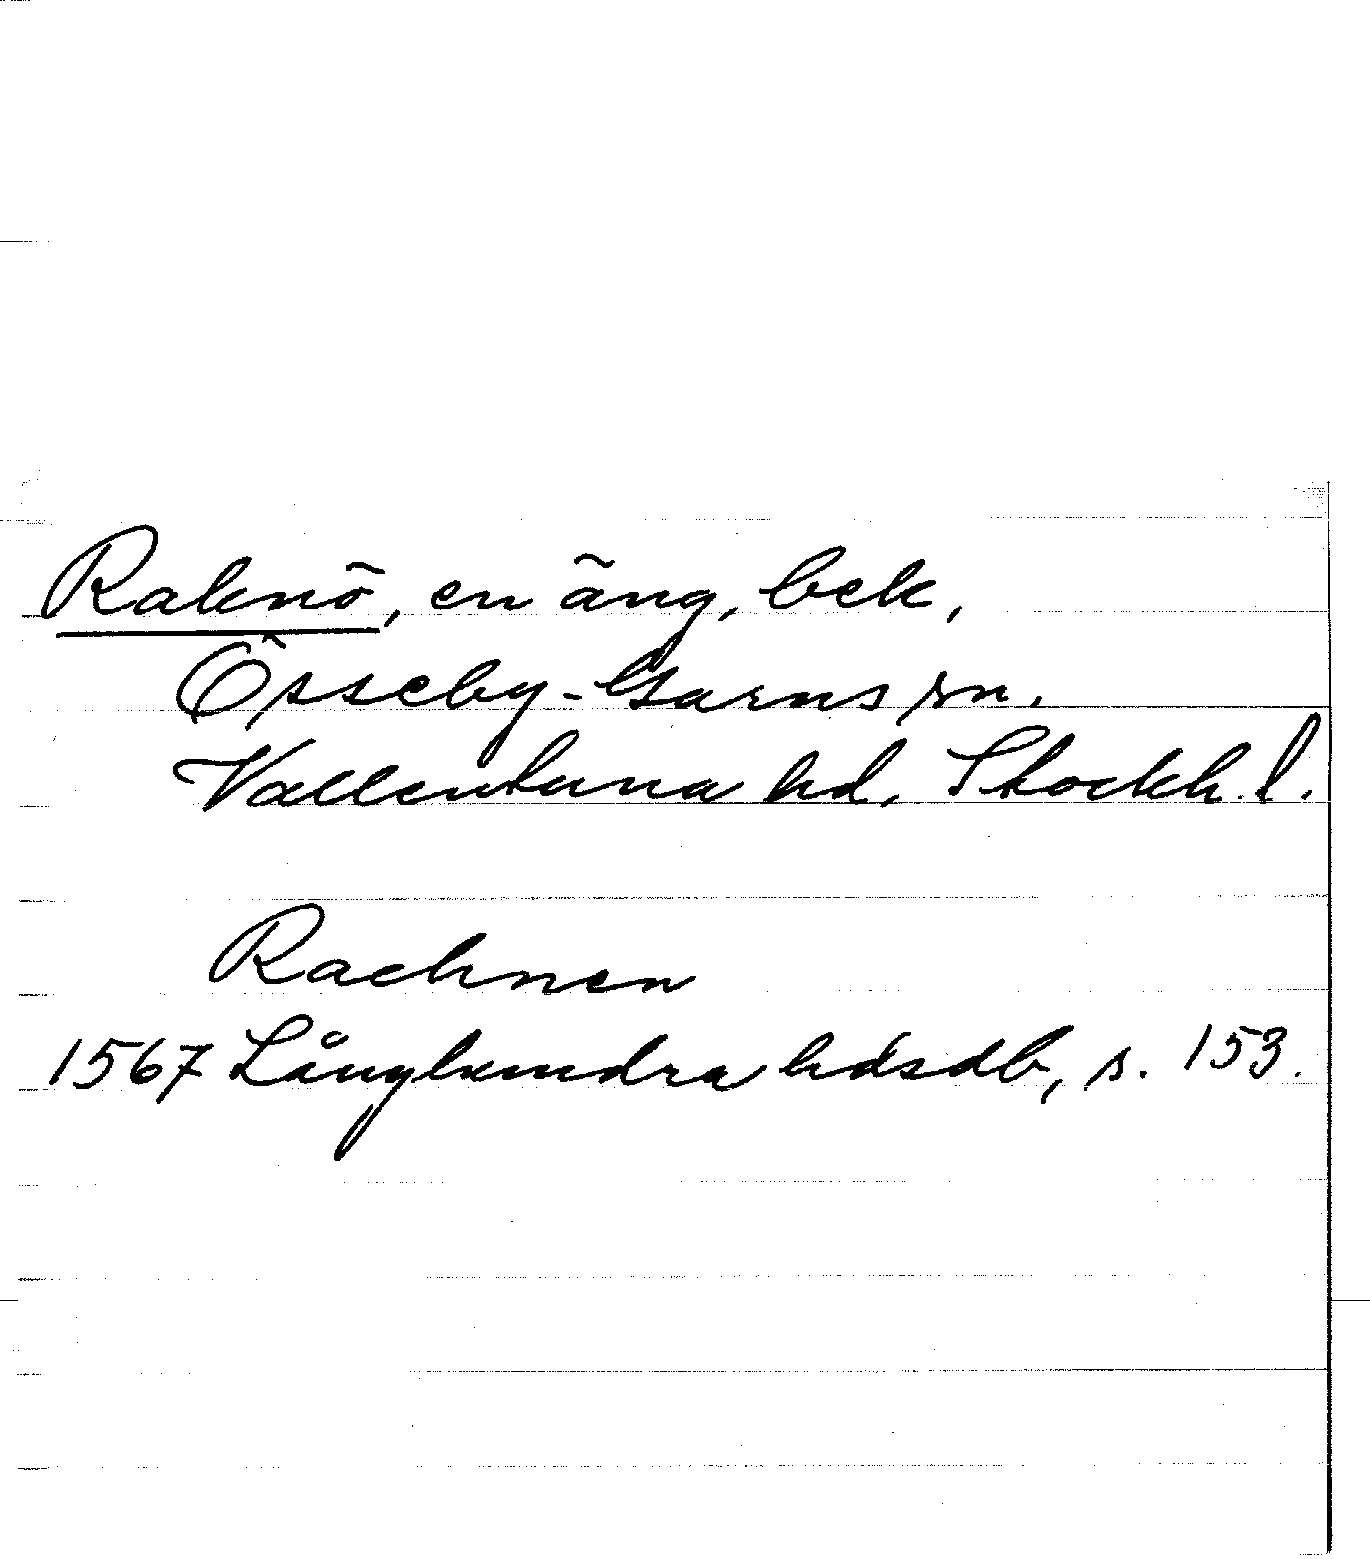 Raknö, en äng, bek,
Össeby-Garns sn.
Vallentuna hd, Stockh. l.
Rachnen
1567 Långhundra hdsdb, s. 153.